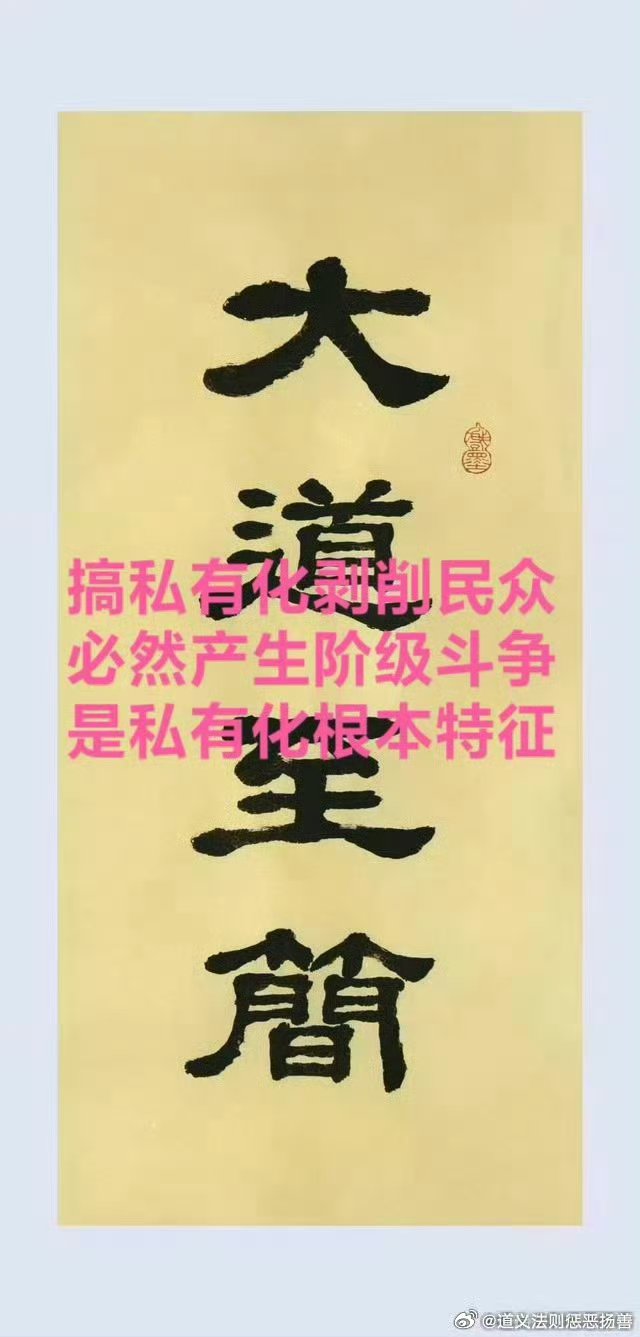 大道至簡
搞私有化剥削民众
必然产生阶级斗争
是私有化根本特征
@道义法则惩恶扬善